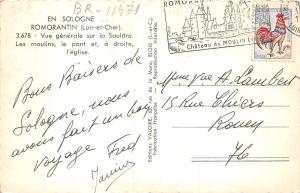 BR-11471
EN SOLOGNE
ROMORANTIN (Loir-et-Cher)
3.678 - Vue générale sur la Sauldre.
Les moulins, le pont et, à droite,
l'église.
Bons Baisers de
Sologne, nous
avons fait un bon
voyage Fred
Janine
Editions VALOIRE, rue de la Mare, BLOIS (L.-et-C.)
Reproduction interdite
ROMORANTIN
Château du MOULIN
Mme Vve A. Lambert
15 Rue Thiers
Rouen
76